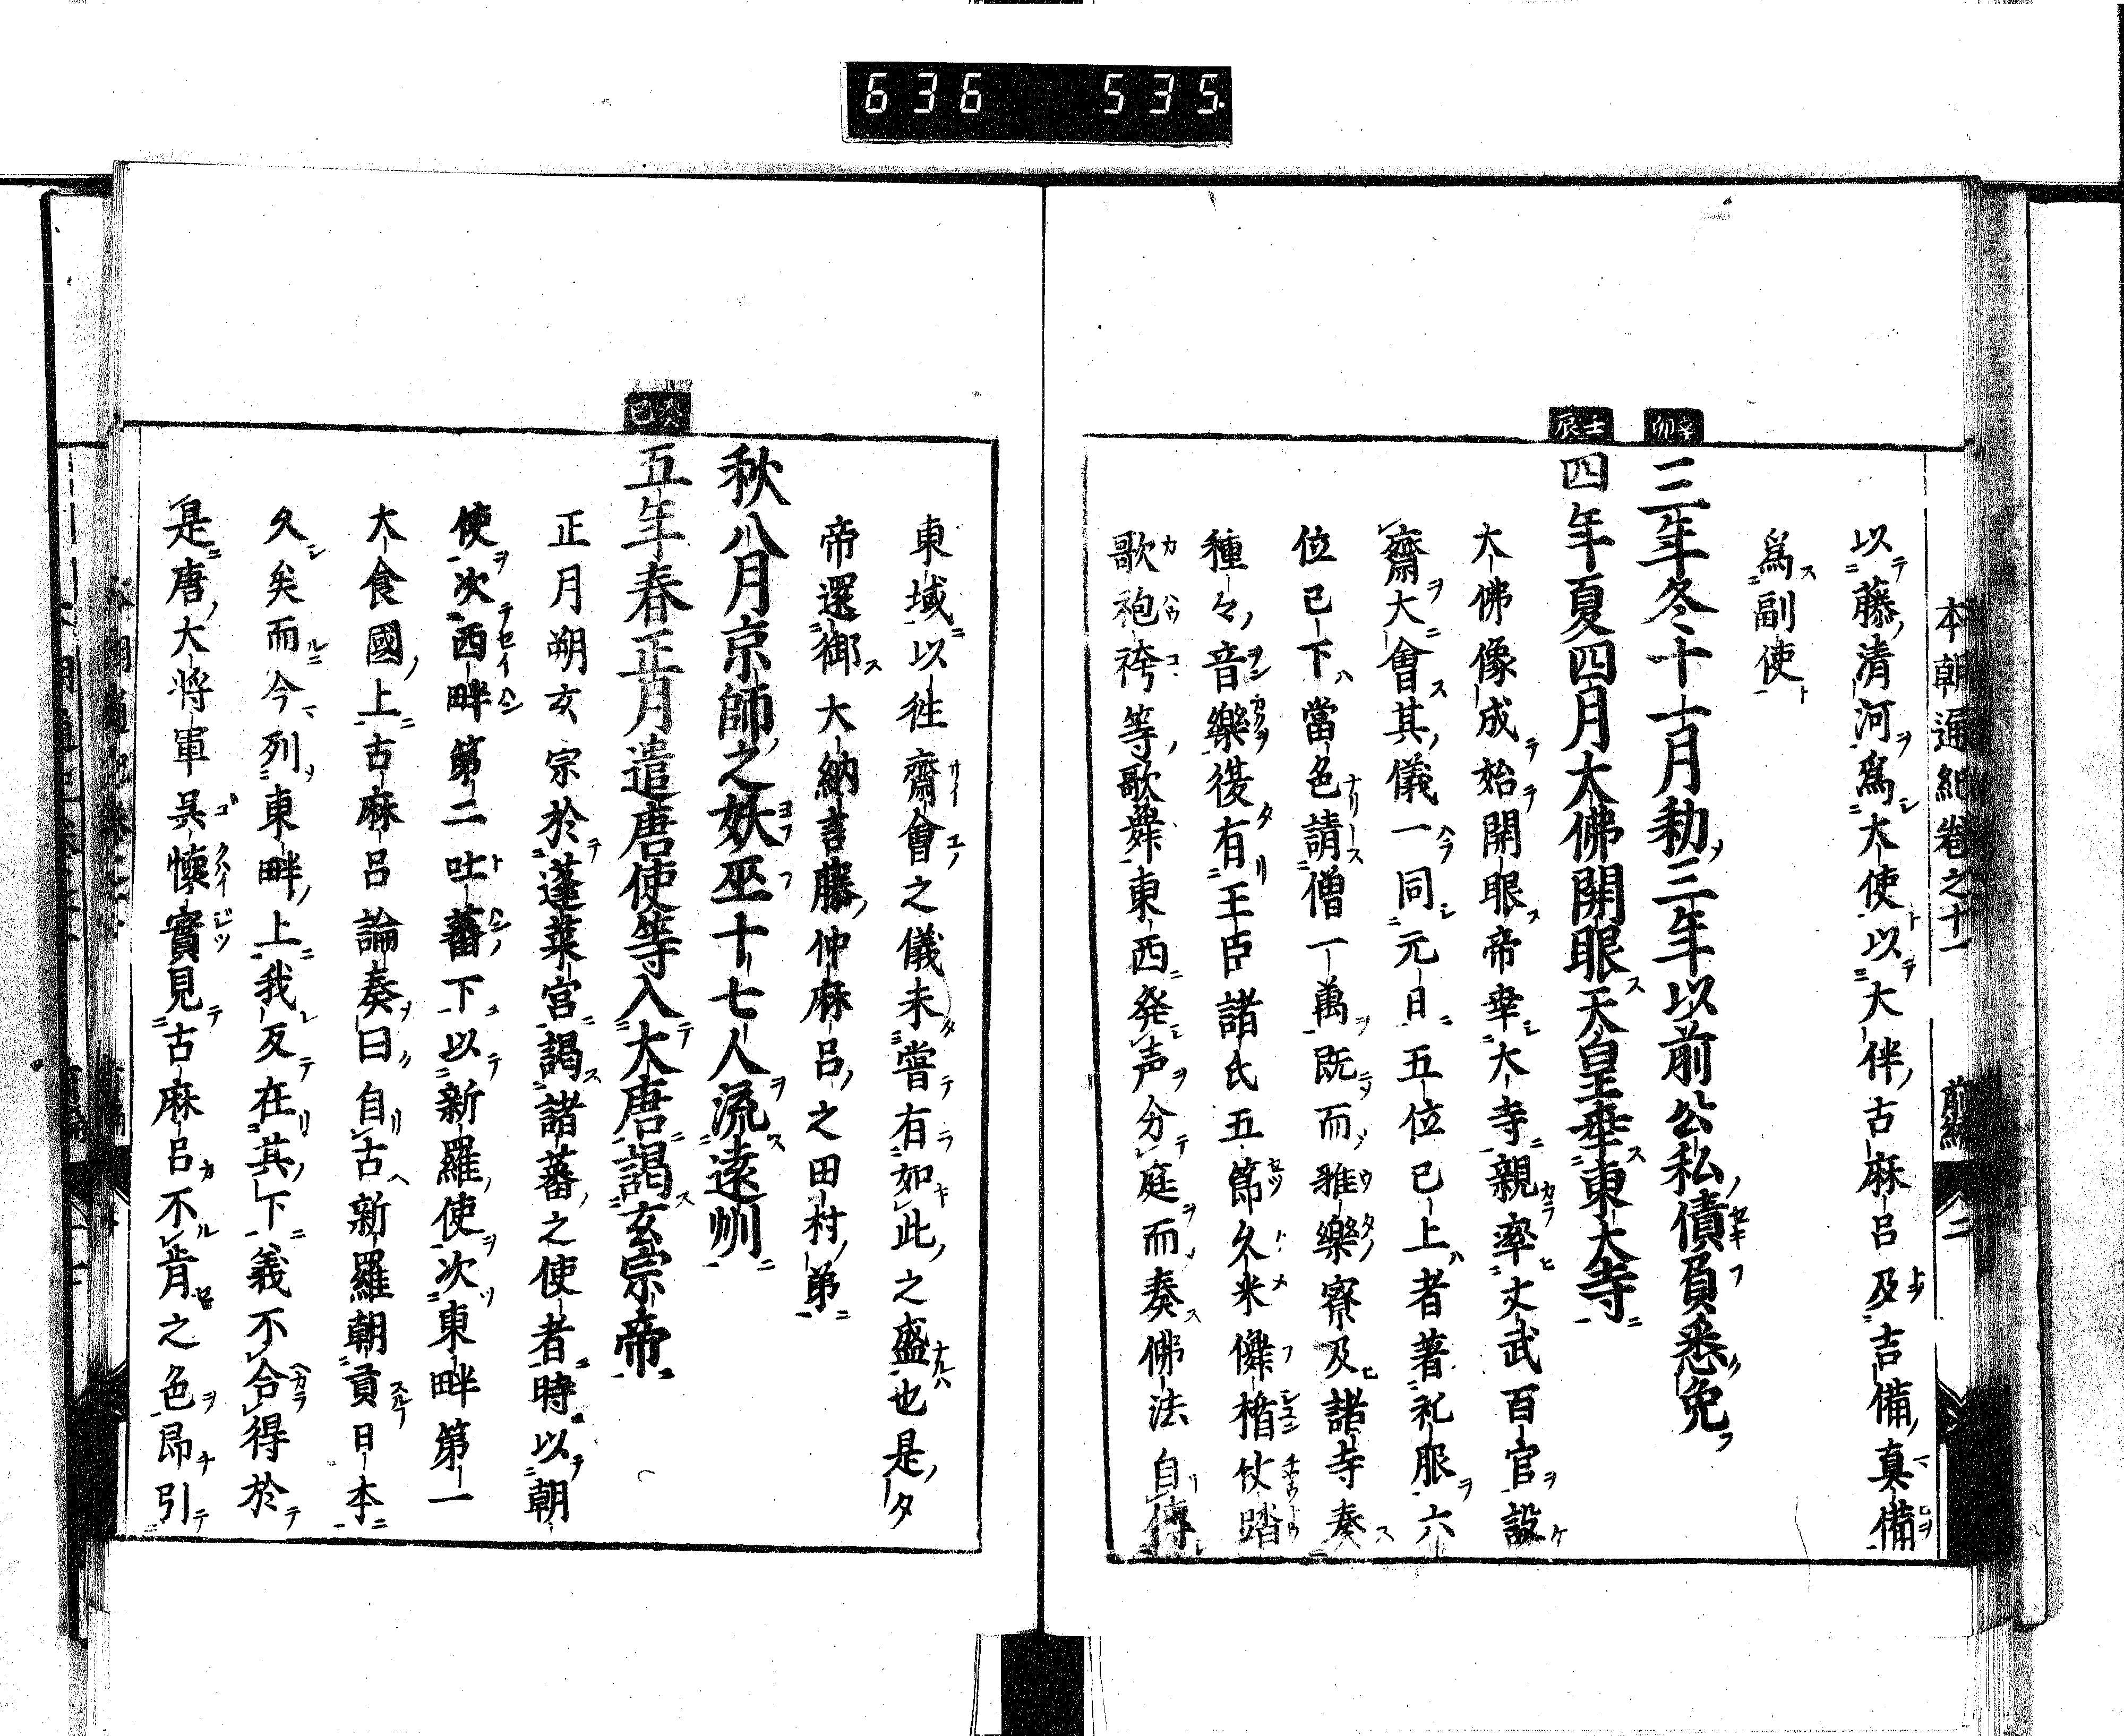 636 535
本朝通紀卷之十一 前編 二
以藤清河爲大使以大伴古麻呂及吉備真備
爲副使
辛卯
三年冬十一月勅三年以前公私債負悉免
壬辰
四年夏四月大佛開眼天皇幸東大寺
大佛像成始開眼帝幸大寺親率文武百官設
齋大會其儀一同元日五位已上者著礼服六
位已下當色請僧一萬既而雅樂寮及諸寺奏
種々音樂復有王臣諸氏五節久米儛楯伏踏
歌袍袴等歌舞東西発声分庭而奏佛法自傳
東域以徃齋會之儀未嘗有如此之盛也是夕
帝還御大納言藤仲麻呂之田村弟
秋八月京師之妖巫十七人流遠州
癸巳
五年春正月遣唐使等入大唐謁玄宗帝
正月朔玄宗於蓬萊宮謁諸蕃之使者時以朝
使次西畔第二吐蕃下以新羅使次東畔第一
大食國上古麻呂論奏曰自古新羅朝貢日本
久矣而今列東畔上我反在其下義不合得於
是唐大将軍呉懐實見古麻呂不肯之色即引